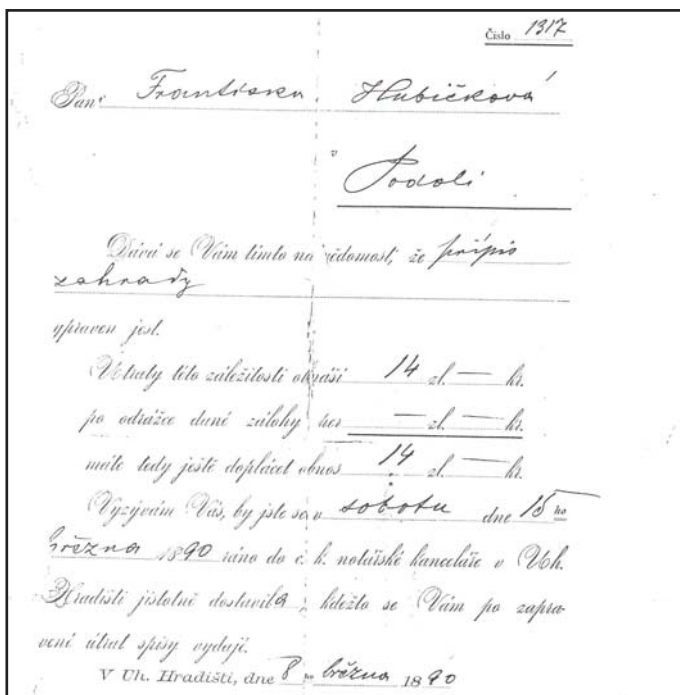 Číslo 1317
Paní Františka Hubičková
v
Podolí
Dává se Vám tímto na vědomost, že přípis
zahrady
vypraven jest.
Útraty této záležitosti obnáší 14 zl. — kr.
po odrážce dané zálohy per — zl. — kr.
máte tedy ještě doplácet obnos 14 zl. — kr.
Vyzývám Vás, by jste se v sobotu dne 15 ho
března 1890 ráno do c. k. notářské kanceláře v Uh.
Hradišti jistotně dostavila, kdežto se Vám po zapra-
vení útrat spisy vydají.
V Uh. Hradišti, dne 8 ho března 1890